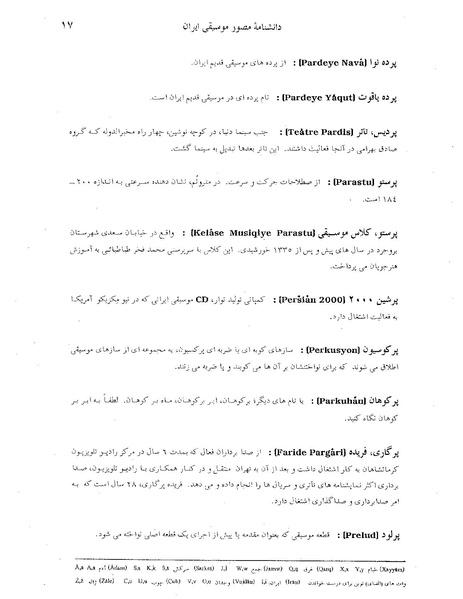 دانشنامهٔ مصور موسیقی ایران ۱۷
پرده نوا (Pardeye Navâ) : از پرده های موسیقی قدیم ایران.
پرده یاقوت (Pardeye Yâqut) : نام پرده ای در موسیقی قدیم ایران است.
پردیس، تاتر (Teâtre Pardis) : جنب سینما دنیا، در کوچه نوشین، چهار راه مخبرالدوله که گروه
صادق بهرامی در آنجا فعالیت داشتند. این تاتر بعدها تبدیل به سینما گشت.
پرستو (Parastu) : از اصطلاحات حرکت و سرعت. در مترونُم، نشان دهنده سرعتی به اندازه ۲۰۰ –
۱۸۴ است.
پرستو، کلاس موسیقی (Kelâse Musiqiye Parastu) : واقع در خیابان سعدی شهرستان
بروجرد در سال های پیش و پس از ۱۳۳۵ خورشیدی. این کلاس با سرپرستی محمد فخر طباطبائی به آموزش
هنرجویان می پرداخت.
پرشین ۲۰۰۰ (Peršiân 2000) : کمپانی تولید نوار، CD موسیقی ایرانی که در نیو مکزیکو آمریکا
به فعالیت اشتغال دارد.
پرکوسیون (Perkusyon) : سازهای کوبه ای یا ضربه ای پرکسیون، به مجموعه ای از سازهای موسیقی
اطلاق می شوند که برای نواختنشان بر آن ها می کوبند و یا ضربه می زنند.
پرکوهان (Parkuhân) : یا نام های دیگر؛ برکوهان، ابر برکوهان، ماه بر کوهان. لطفاً به ابر بر
کوهان نگاه کنید.
پرگاری، فریده (Faride Pargâri) : از صدا برداران فعال که بمدت ۶ سال در مرکز رادیو تلویزیون
کرمانشاهان به کار اشتغال داشت و بعد از آن به تهران منتقل و در کنار همکاری با رادیو تلویزیون، صدا
برداری اکثر نمایشنامه های تآتری و سریال ها را انجام داده و می دهد. فریده پرگاری، ۲۸ سال است که به
امر صدابرداری و صداگذاری اشتغال دارد.
پرلود (Prelud) : قطعه موسیقی که بعنوان مقدمه یا پیش از اجرای یک قطعه اصلی نواخته می شود.